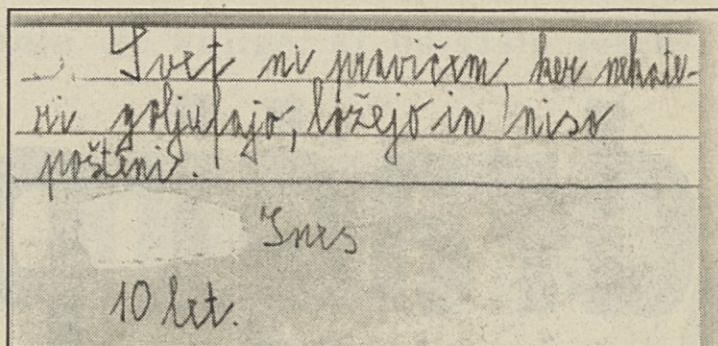 Svet ni pravičen, ker nekate-
ri goljufajo, lažejo in niso
pošteni.
Ines
10 let.